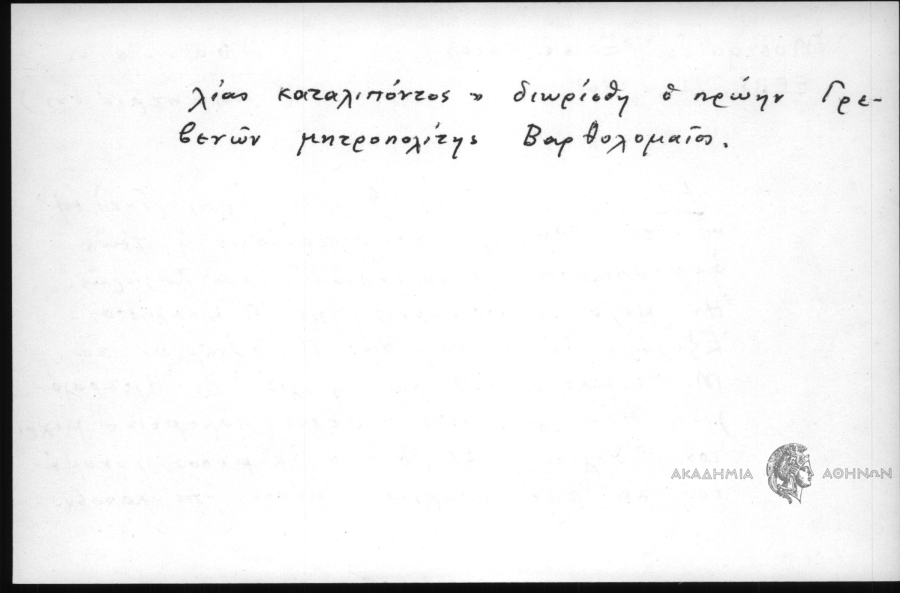 λίας καταλιπόντος » διωρίσθη ὁ πρώην Γρε-
βενῶν μητροπολίτης Βαρθολομαῖος.
ΑΚΑΔΗΜΙΑ ΑΘΗΝΩΝ